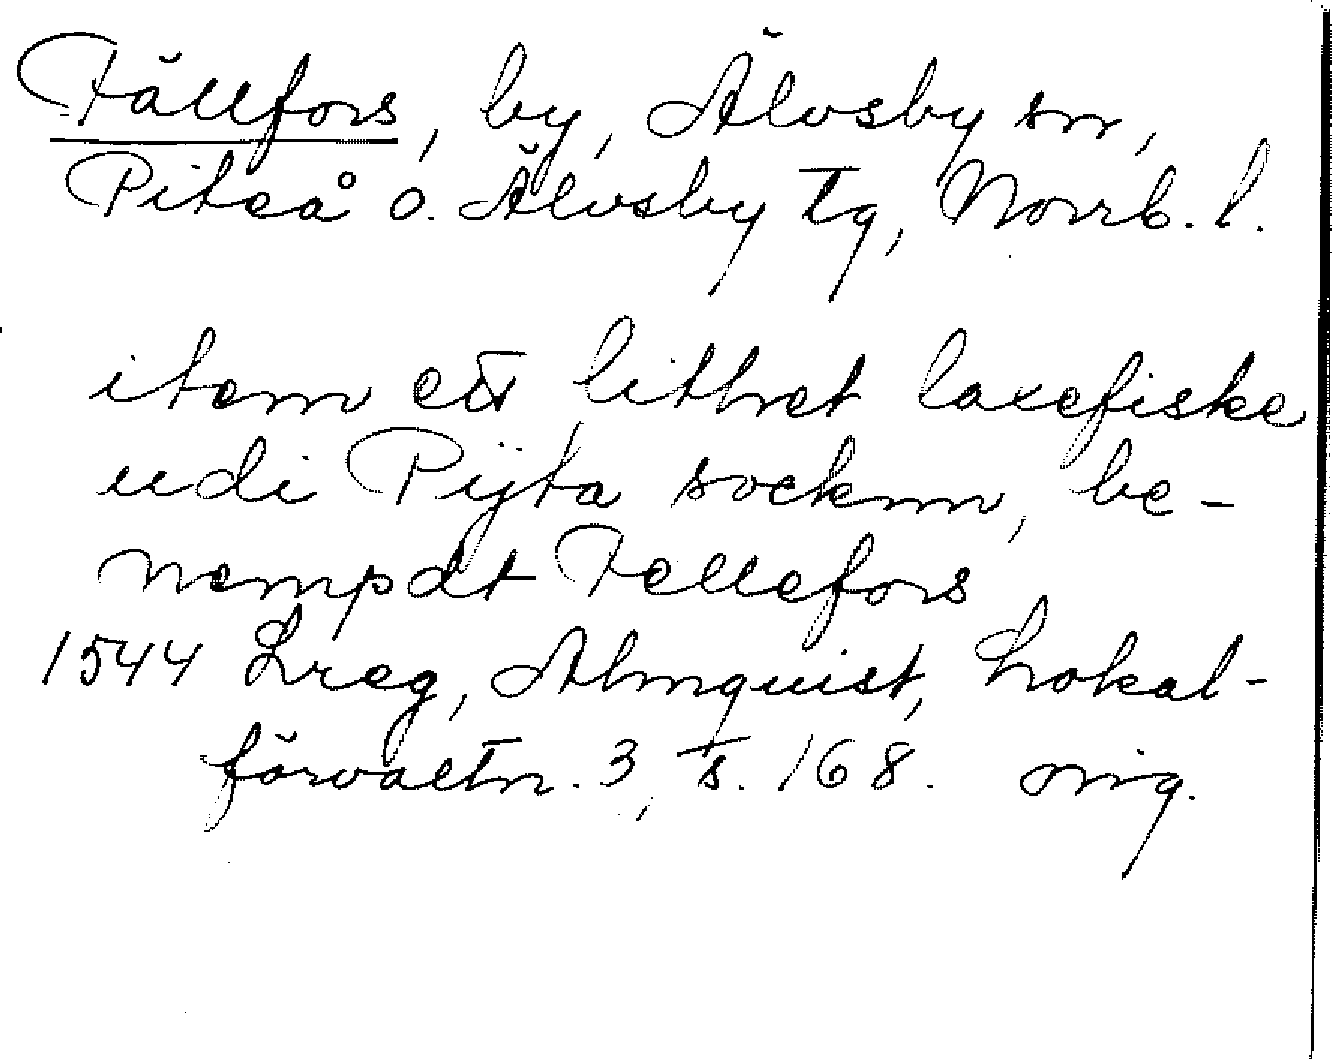 Fällfors, by, Älvsby sn,
Piteå o. Älvsby tg, Norrb. l.
item ett litthet laxefiske
udi Pijta socknn, be-
nempdt Fellefors
1544 Lreg, Almquist, Lokal-
förvaltn. 3, s. 168. orig.